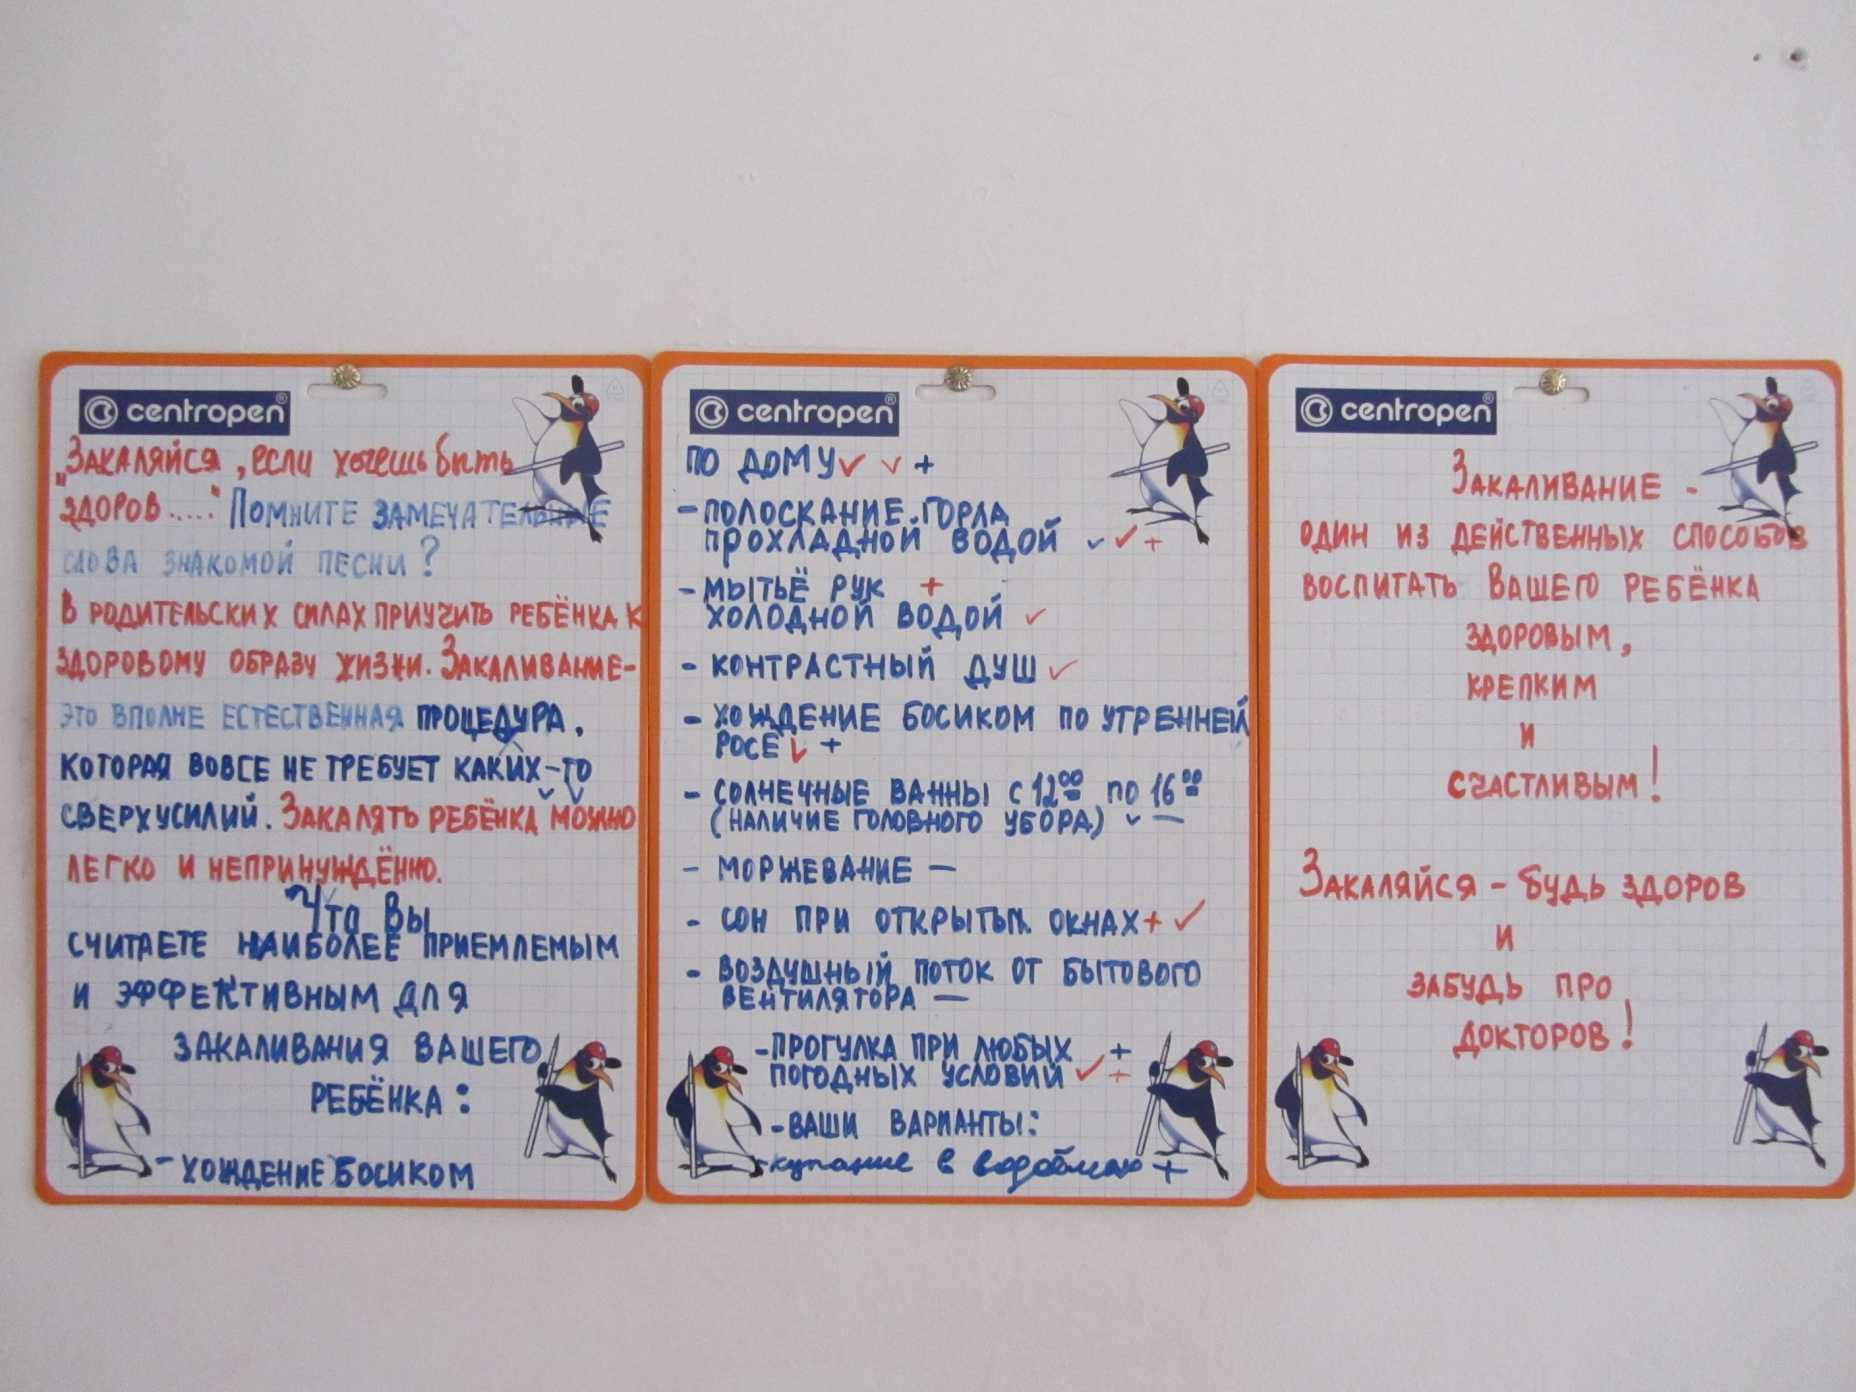 centropen®
„Закаляйся, если хочешь быть
здоров....“ Помните замечательные
слова знакомой песни?
В родительских силах приучить ребёнка к
здоровому образу жизни. Закаливание-
это вполне естественная процедура,
которая вовсе не требует каких-то
сверхусилий. Закалять ребёнка можно
легко и непринуждённо.
Что Вы
считаете наиболее приемлемым
и эффективным для
закаливания вашего
ребёнка:
- хождение босиком
centropen®
по дому ✓ ✓ +
- полоскание горла
прохладной водой ✓ ✓ +
- мытьё рук +
холодной водой ✓
- контрастный душ ✓
- хождение босиком по утренней
росе ✓ +
- солнечные ванны с 12⁰⁰ по 16⁰⁰
(наличие головного убора) ✓ —
- моржевание —
- сон при открытых окнах + ✓
- воздушный поток от бытового
вентилятора —
- прогулка при любых +
погодных условий ✓ +
- ваши варианты:
- купание в водоёмах +
centropen®
Закаливание -
один из действенных способов
воспитать Вашего ребёнка
здоровым,
крепким
и
счастливым!
Закаляйся - будь здоров
и
забудь про
докторов!